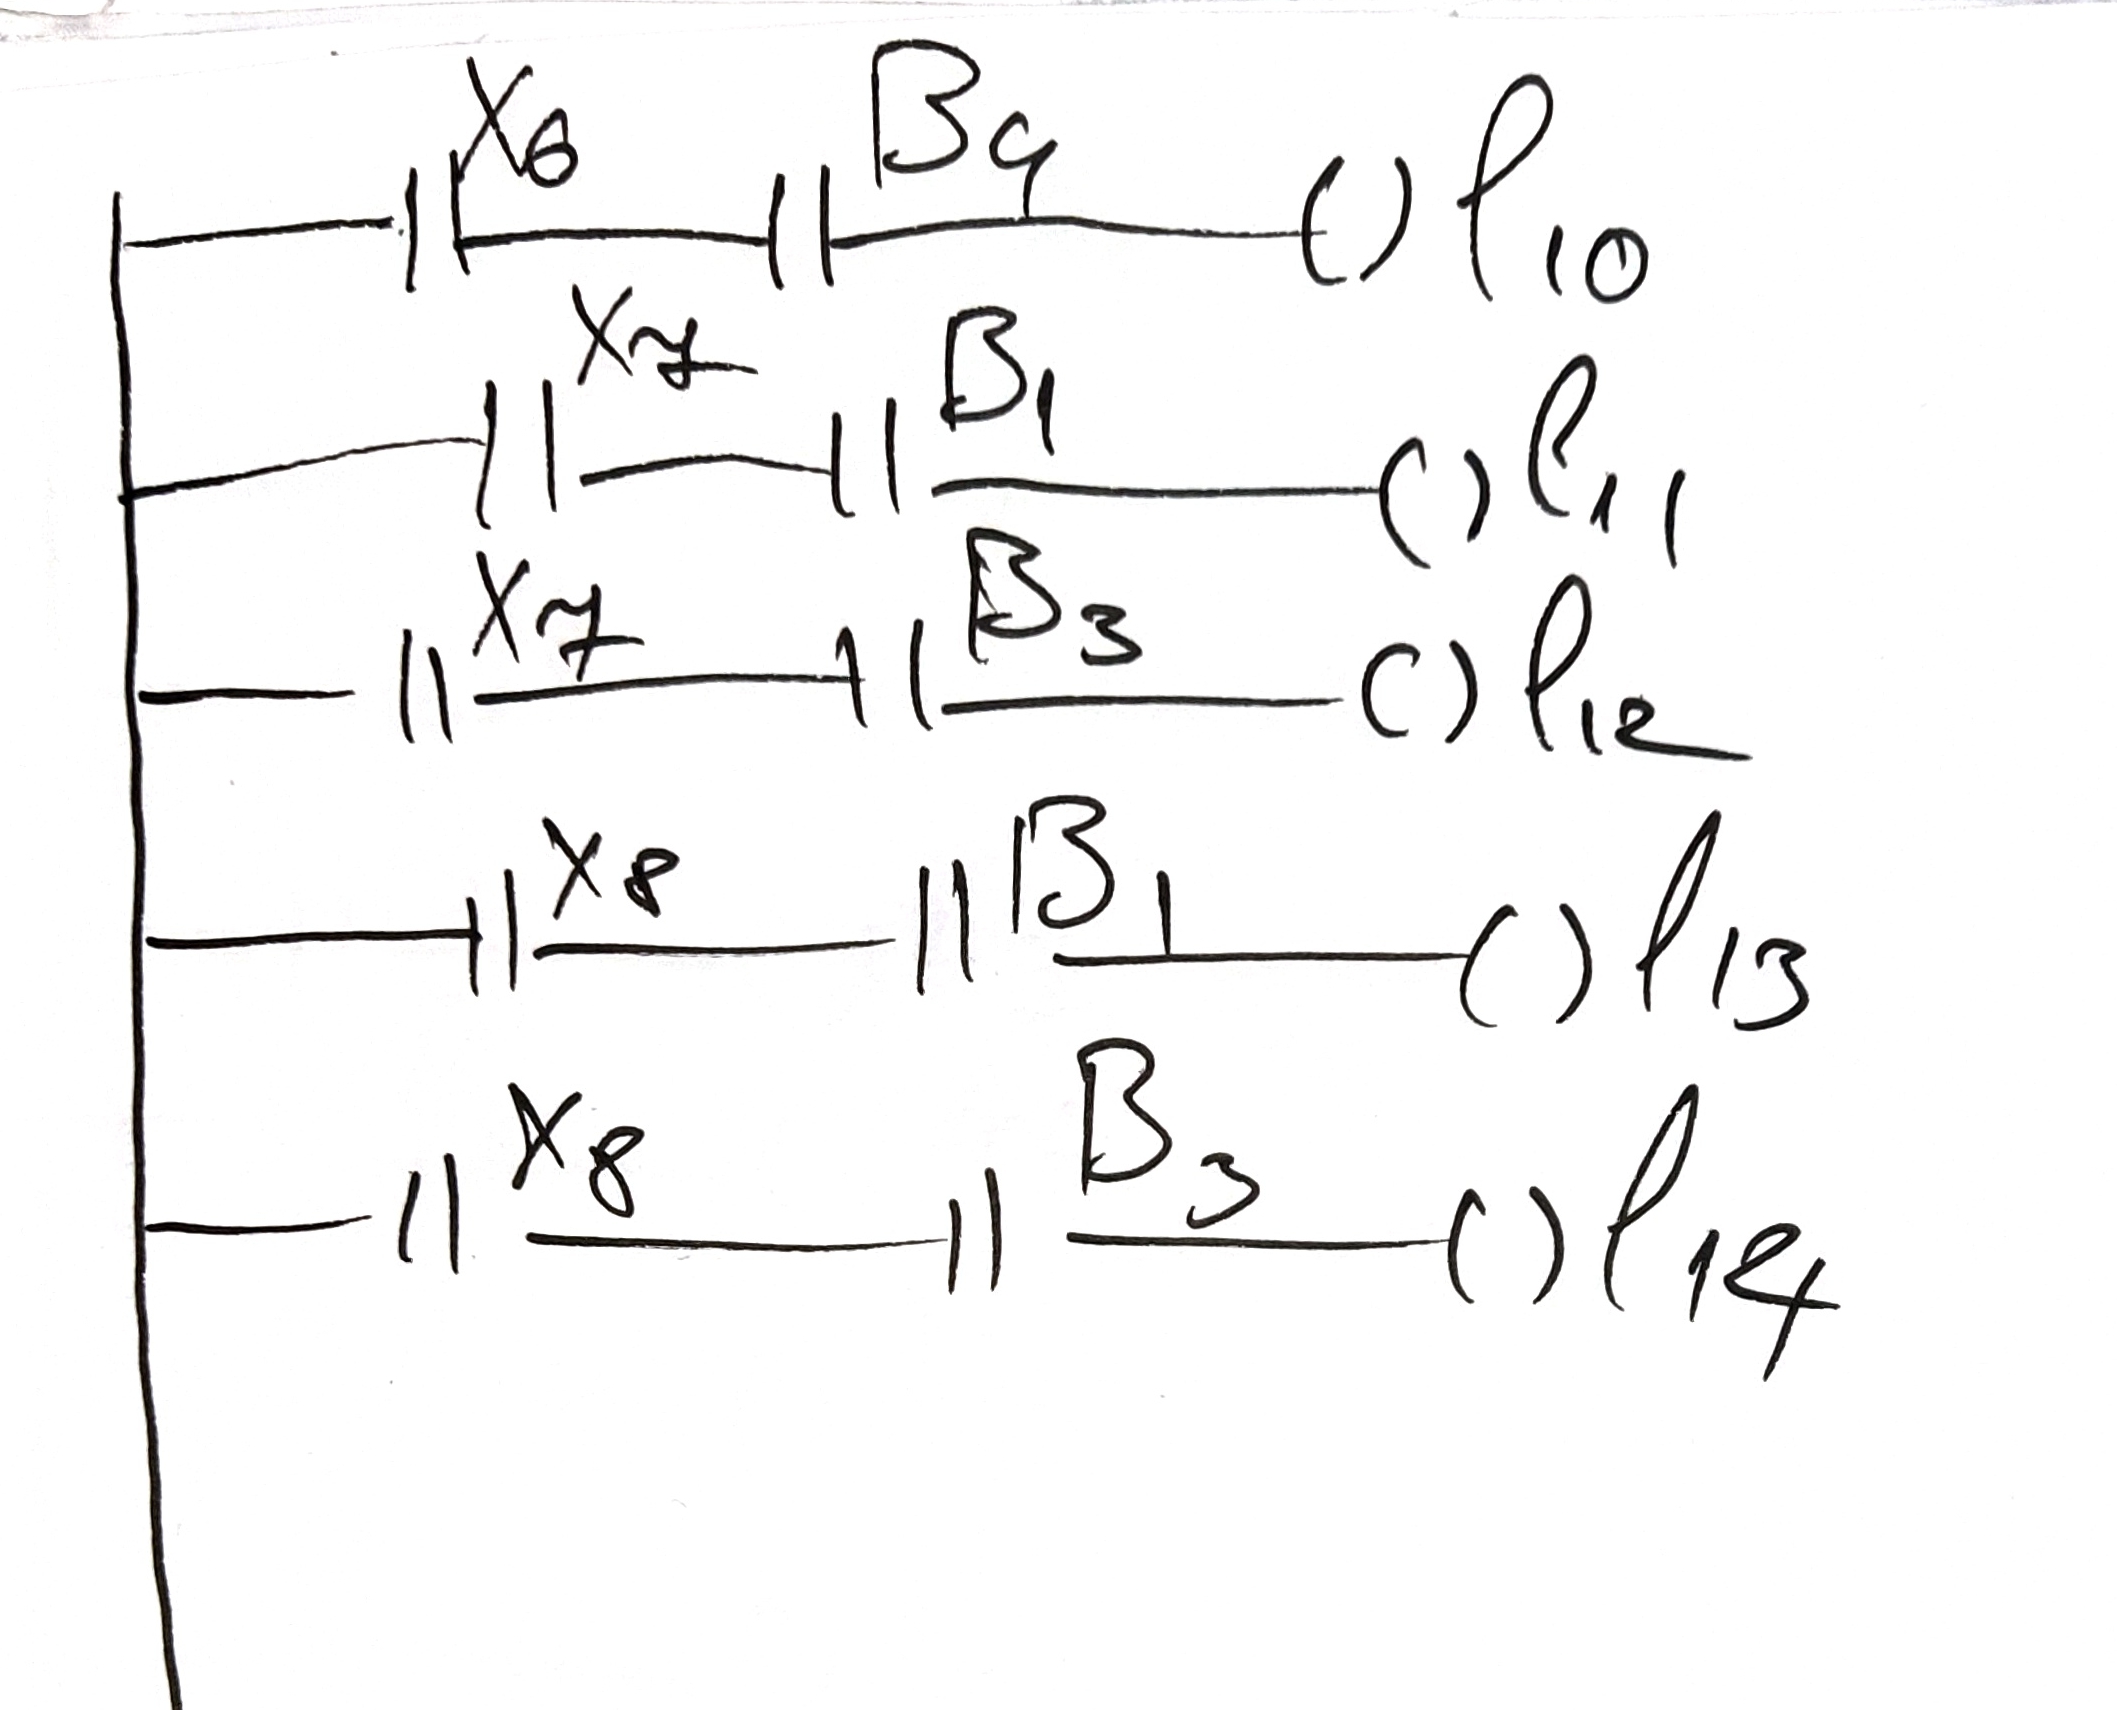 X6 B4 ( ) l10
X7 B1 ( ) l11
X7 B3 ( ) l12
X8 B1 ( ) l13
X8 B3 ( ) l14